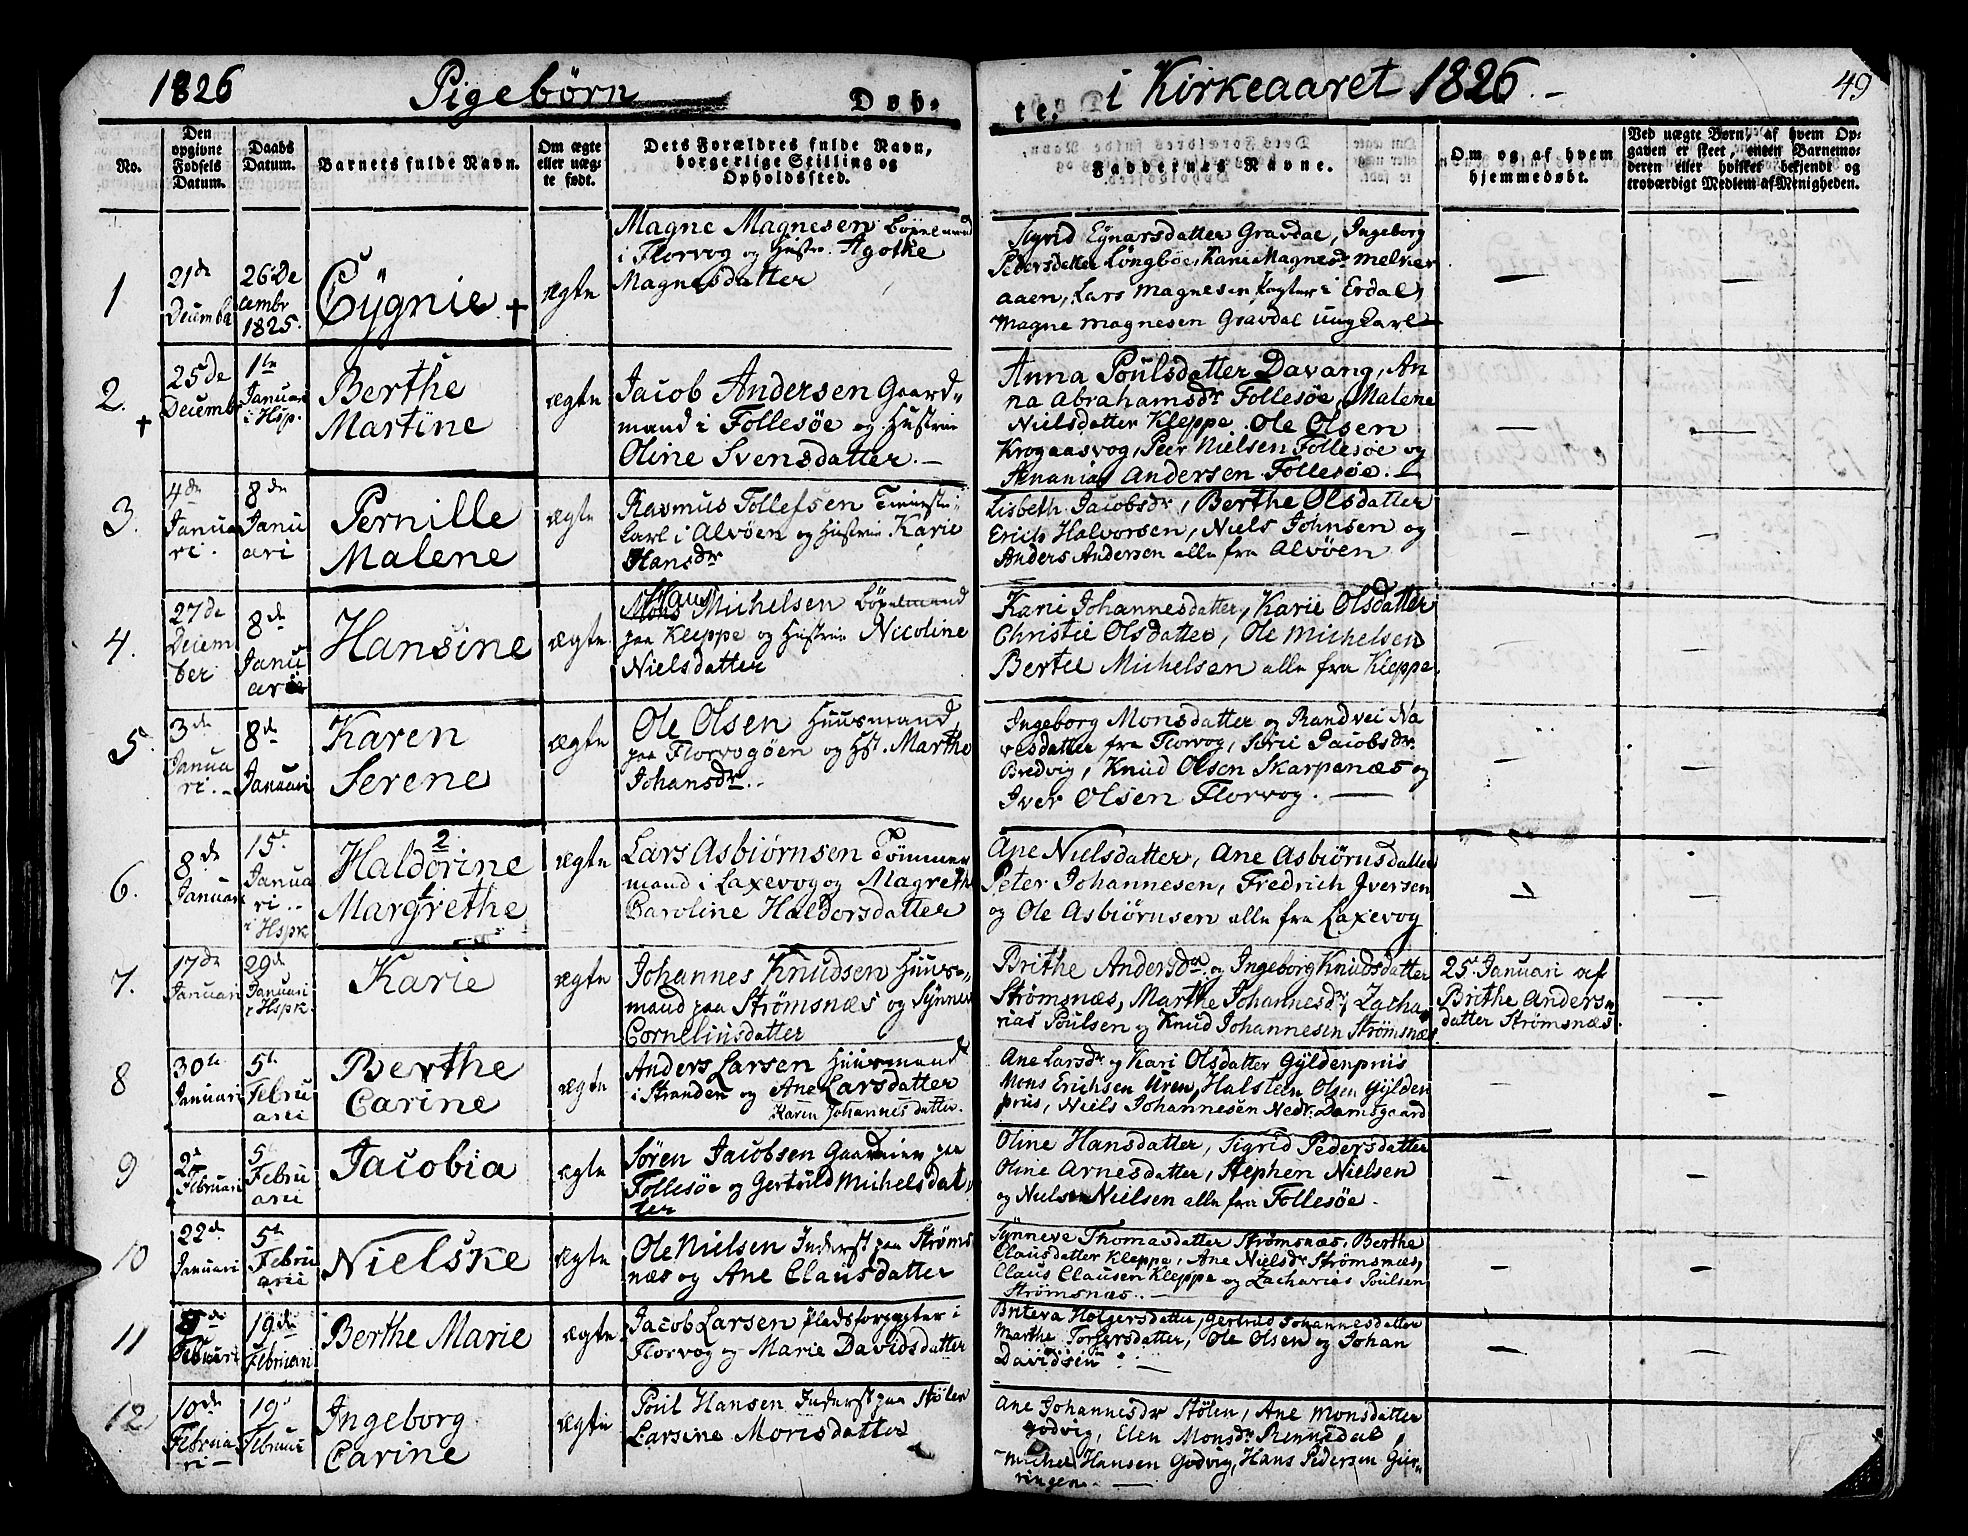 1826 Pigebørn Døb-
te. i Kirkeaaret 1826. 49
No.
Den opgivne Fødsels Datum.
Daabs Datum.
Barnets fulde Navn.
Om ægte eller uæg-
te født.
Dets Forældres fulde Navn,
borgerlige Stilling og
Opholdssted.
Faddernes Navne.
Om og af hvem
hjemmedøbt.
Ved uægte Børn, af hvem Op-
gaven er skeet, enten Barnemo-
deren eller hvilket bekjendt og
troværdigt Medlem af Menigheden.
1
21de
Decembr
26 De
cembr
1825.
Cygnie +
ægte
Magne Magnesen Bøxelmand
i Florvog og Hustr. Agothe
Magnesdatter
Sigrid Eynarsdatter Gravdal, Ingeborg
Pedersdatter Lōngbøe, Karie Magnesdr
aaen, Lars Magnesen i Erdal,
Magne Magnesen Gravdal Ungkarl
—
—
2. +
25de
Decembr
1te
Januari
i Hsp.
Berthe
Martine
ægte
Jacob Andersen Gaard-
mand i Follesøe og Hustrue
Oline Svensdatter. —
Anna Poulsdatter Davang, An-
na Abrahamsdr Follesøe, Malene
Nielsdatter Kleppe. Ole Olsen
Krogaasvog, Peer Nielsen Follesøe og
Ananias Andersen Follesøe. —
—
—
3.
4de
Janua
ri.
8de
Janu
ari
Pernille
Malene
ægte
Rasmus Tollefsen Tieneste-
karl i Alvøen og Hustrue Karie
Hansdr
Lisbeth Jacobsdr, Berthe Olsdatter
Erich Halvorsen, Niels Johnsen og
Anders Andersen alle fra Alvøen
—
—
4.
27de
Decem
ber
8de
Janu
arie
Hansine
ægte
Hans Michelsen Bøxelmand
paa Kleppe og Hustrue Nicoline
Nielsdatter
Karie Johannesdatter, Karie Olsdatter
Christie Olsdatter, Ole Michelsen
Bertel Michelsen alle fra Kleppe.
5.
3de
Janua
ri. -
8de
Januari
Karen
Serene
ægte
Ole Olsen Huusmand
paa Florvogøen og Hst. Marthe
Johansdr. -
Ingeborg Monsdatter og Randvei Na
vesdatter fra Florvog, Sørie Jacobsdr.
Bredvig, Knud Olsen Skarpenæs og
Iver Olsen Florvog. —
—
—
6.
8de
Januari
15.
Janua
ri. -
i Hspk
2
Haldorine
1
Margrethe
ægte
Lars Asbiørnsen Tømmer
mand i Laxevog og Magrethe
Caroline Haldorsdatter
Ane Nielsdatter, Ane Asbiørnsdatter
Peter Johannesen, Fredrich Iversen
og Ole Asbiørnsen alle fra Laxevog
—
—
7.
17de
Januari
29d
Januari
i Hspk.
Karie
ægte
Johannes Knudsen Huus-
mand paa Strømsnæs og Synneve
Corneliusdatter
Brithe Andersdr og Ingeborg Knudsdatter
Strømsnæs, Marthe Johannesdr, Zacha
rias Poulsen og Knud Johannesen Strømsnæs
25. Januari af
Brithe Anders
datter Strømsnæs.
—
8
30te
Januari
5te
Febru
arii
Berthe
Carine
ægte
Anders Larsen Huusmand
i Stranden og Ane Larsdatter
Karen Johannesdatter.
Ane Larsdr og Kari Olsdatter Gyldenpriis
Mons Erichsen Uren, Halsteen Olsen Gylden
priis, Niels Johannesen Nedr. Damsgaard
—
—
9
2de
Februari
5.
Febru
arii
Jacobia
ægte
Søren Jacobsen paa
Follesøe og Gertruld Michelsdat-
ter
Oline Hansdatter, Sigrid Pedersdatter
Oline Arnesdatter, Stephen Nielsen
og Nielsen alle fra Follesøe.
—
—
10
22de
Januari
5te
Febru
arii
Nielske
ægte
Ole Nielsen Inderst paa Strøms
næs og Ane Clausdatter
Synneve Thomasdatter Strømsnæs, Berthe
Clausdatter Kleppe, Ane Nielsdr Strømsnæs,
Claus Clausen Kleppe og Zacharias Poulsen
Strømsnæs. —
—
—
11
de
Februari
19de
Februari
Berthe Marie
ægte
Jacob Larsen Pladsforpagter i
Florvog og Marie Davidsdatter
Briteva Holgersdatter, Gertrud Johannesdatter
Marthe Torgersdatter, Ole Olsen og Johan
Davidsen —
—
—
12
10de
Februa
ri —
19.
Februari
Ingeborg
Carine
ægte
Poul Hansen Inderst paa Stølen
Larsine Monsdatter
Ane Johannesdr Stølen, Ane Monsdatter
Godvig, Elen Monsdr Rennedal,
Michel Hansen Godvig, Hans Pedersen Giær-
ringen. —